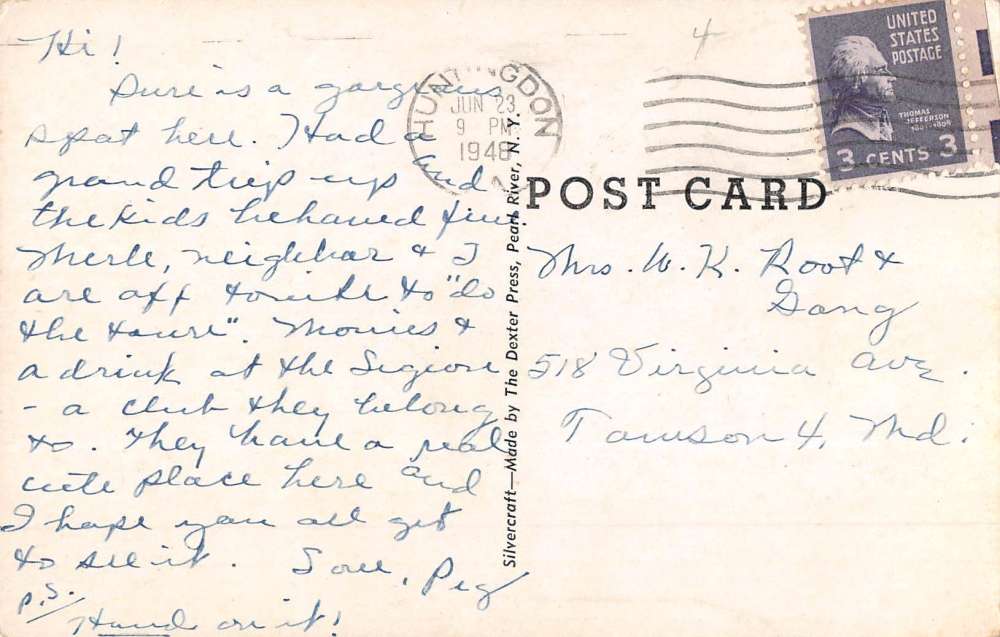 Hi!
Sure is a gorgeous
spot here. Had a
grand trip up and
the kids behaved fine.
Merle, neighbor & I
are off tonite to "do
the town". Movies &
a drink at the Legion
- a club they belong
to. They have a real
cute place here and
I hope you all get
to see it. Love, Peg
P.S./ Hand on it!
HUNTINGDON
JUN 23
9 PM
1948
4
UNITED
STATES
POSTAGE
THOMAS
JEFFERSON
1801-1809
3 CENTS 3
POST CARD
Silvercraft—Made by The Dexter Press, Pearl River, N. Y.
Mrs. W. K. Root &
Gang
518 Virginia Ave.
Towson 4, Md.